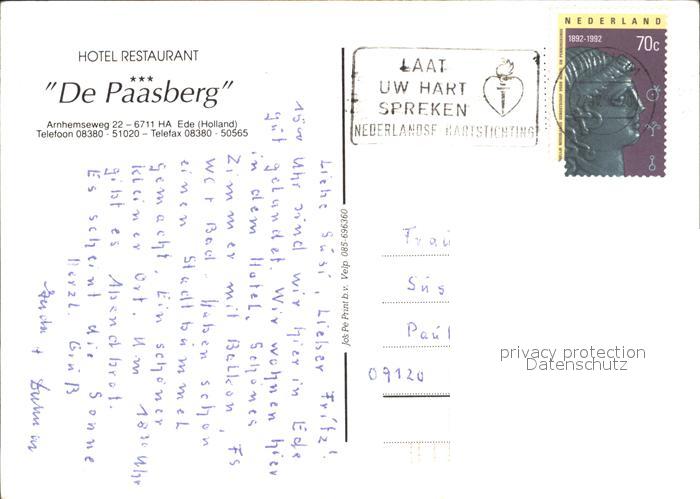 HOTEL RESTAURANT
***
"De Paasberg"
Arnhemseweg 22 – 6711 HA Ede (Holland)
Telefoon 08380 - 51020 – Telefax 08380 - 50565
Liebe Süsi, Lieber Fritz!
Uhr sind wir hier in Ede
gut gelandet. Wir wohnen hier
in dem Hotel, schönes
Zimmer mit Balkon,
Bad. Haben schon
einen Stadtbummel
gemacht. Ein schöner
kleiner Ort. Um 18³⁰ Uhr
gibt es Abendbrot.
Es scheint die Sonne
Herzl. Gruß
Jos Pe Print b.v. Velp 085-696360
LAAT
UW HART
SPREKEN
NEDERLANDSE HARTSTICHTING
NEDERLAND
1892-1992
70c
Frau
Süs
Paul
09120
privacy protection
Datenschutz